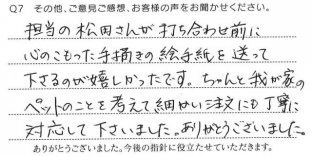 Q7 その他、ご意見ご感想、お客様の声をお聞かせください。
担当の松田さんが打ち合わせ前に
心のこもった手描きの絵手紙を送って
下さるのが嬉しかったです。ちゃんと我が家の
ペットのことを考えて細かい注文にも丁寧に
対応して下さいました。ありがとうございました。
ありがとうございました。今後の指針に役立たせていただきます。